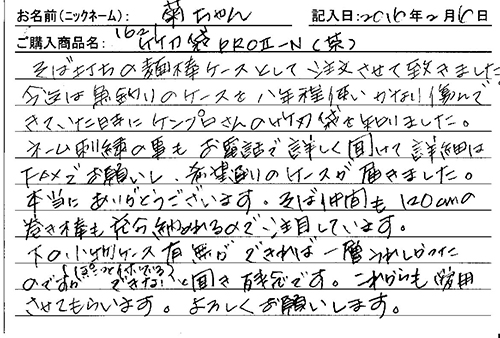 お名前(ニックネーム): 菊ちゃん 記入日: 2016年2月6日
ご購入商品名: 1621 竹刀袋PROⅡ-N(茶)
そば打ちの麺棒ケースとして注文させて致きました
今迄は魚釣りのケースを八年程使いかなり傷んで
きていた時にケンプロさんの竹刀袋を知りました。
ネーム刺繍の事もお電話で詳しく聞けて詳細は
FAXでお願いし、希望通りのケースが届きました。
本当にありがとうございます。そば仲間も120cmの
巻き棒も充分納めれるので注目しています。
下の小物ケース有無ができれば一層うれしかった
のですができないと聞き残念です。これからも愛用
させてもらいます。よろしくお願いします。